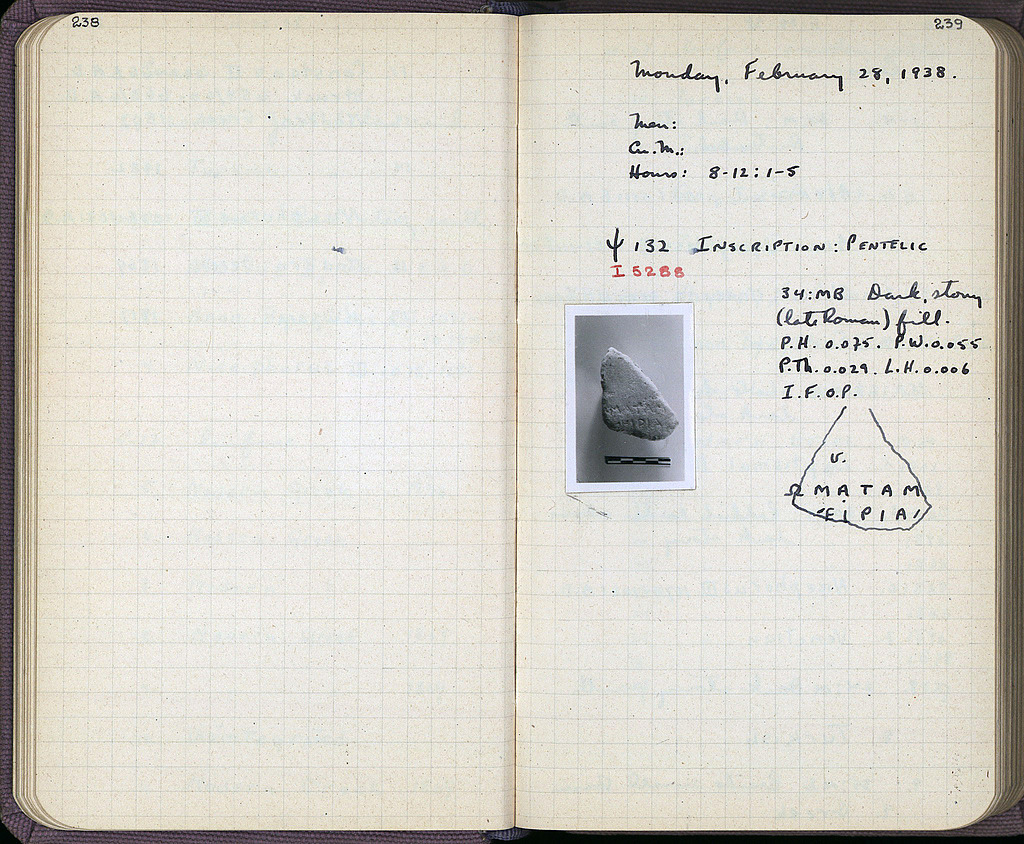 238
239
Monday, February 28, 1938.
Men:
Cu. M.:
Hours: 8-12: 1-5
Ψ 132 INSCRIPTION: PENTELIC
I 5288
34:MB Dark, stony
(late Roman) fill.
P.H. 0.075. P.W. 0.055
P.Th. 0.029. L.H. 0.006
I.F.O.P.
v.
ΩΜΑΤΑΜ
ΕΙΡΙΑ